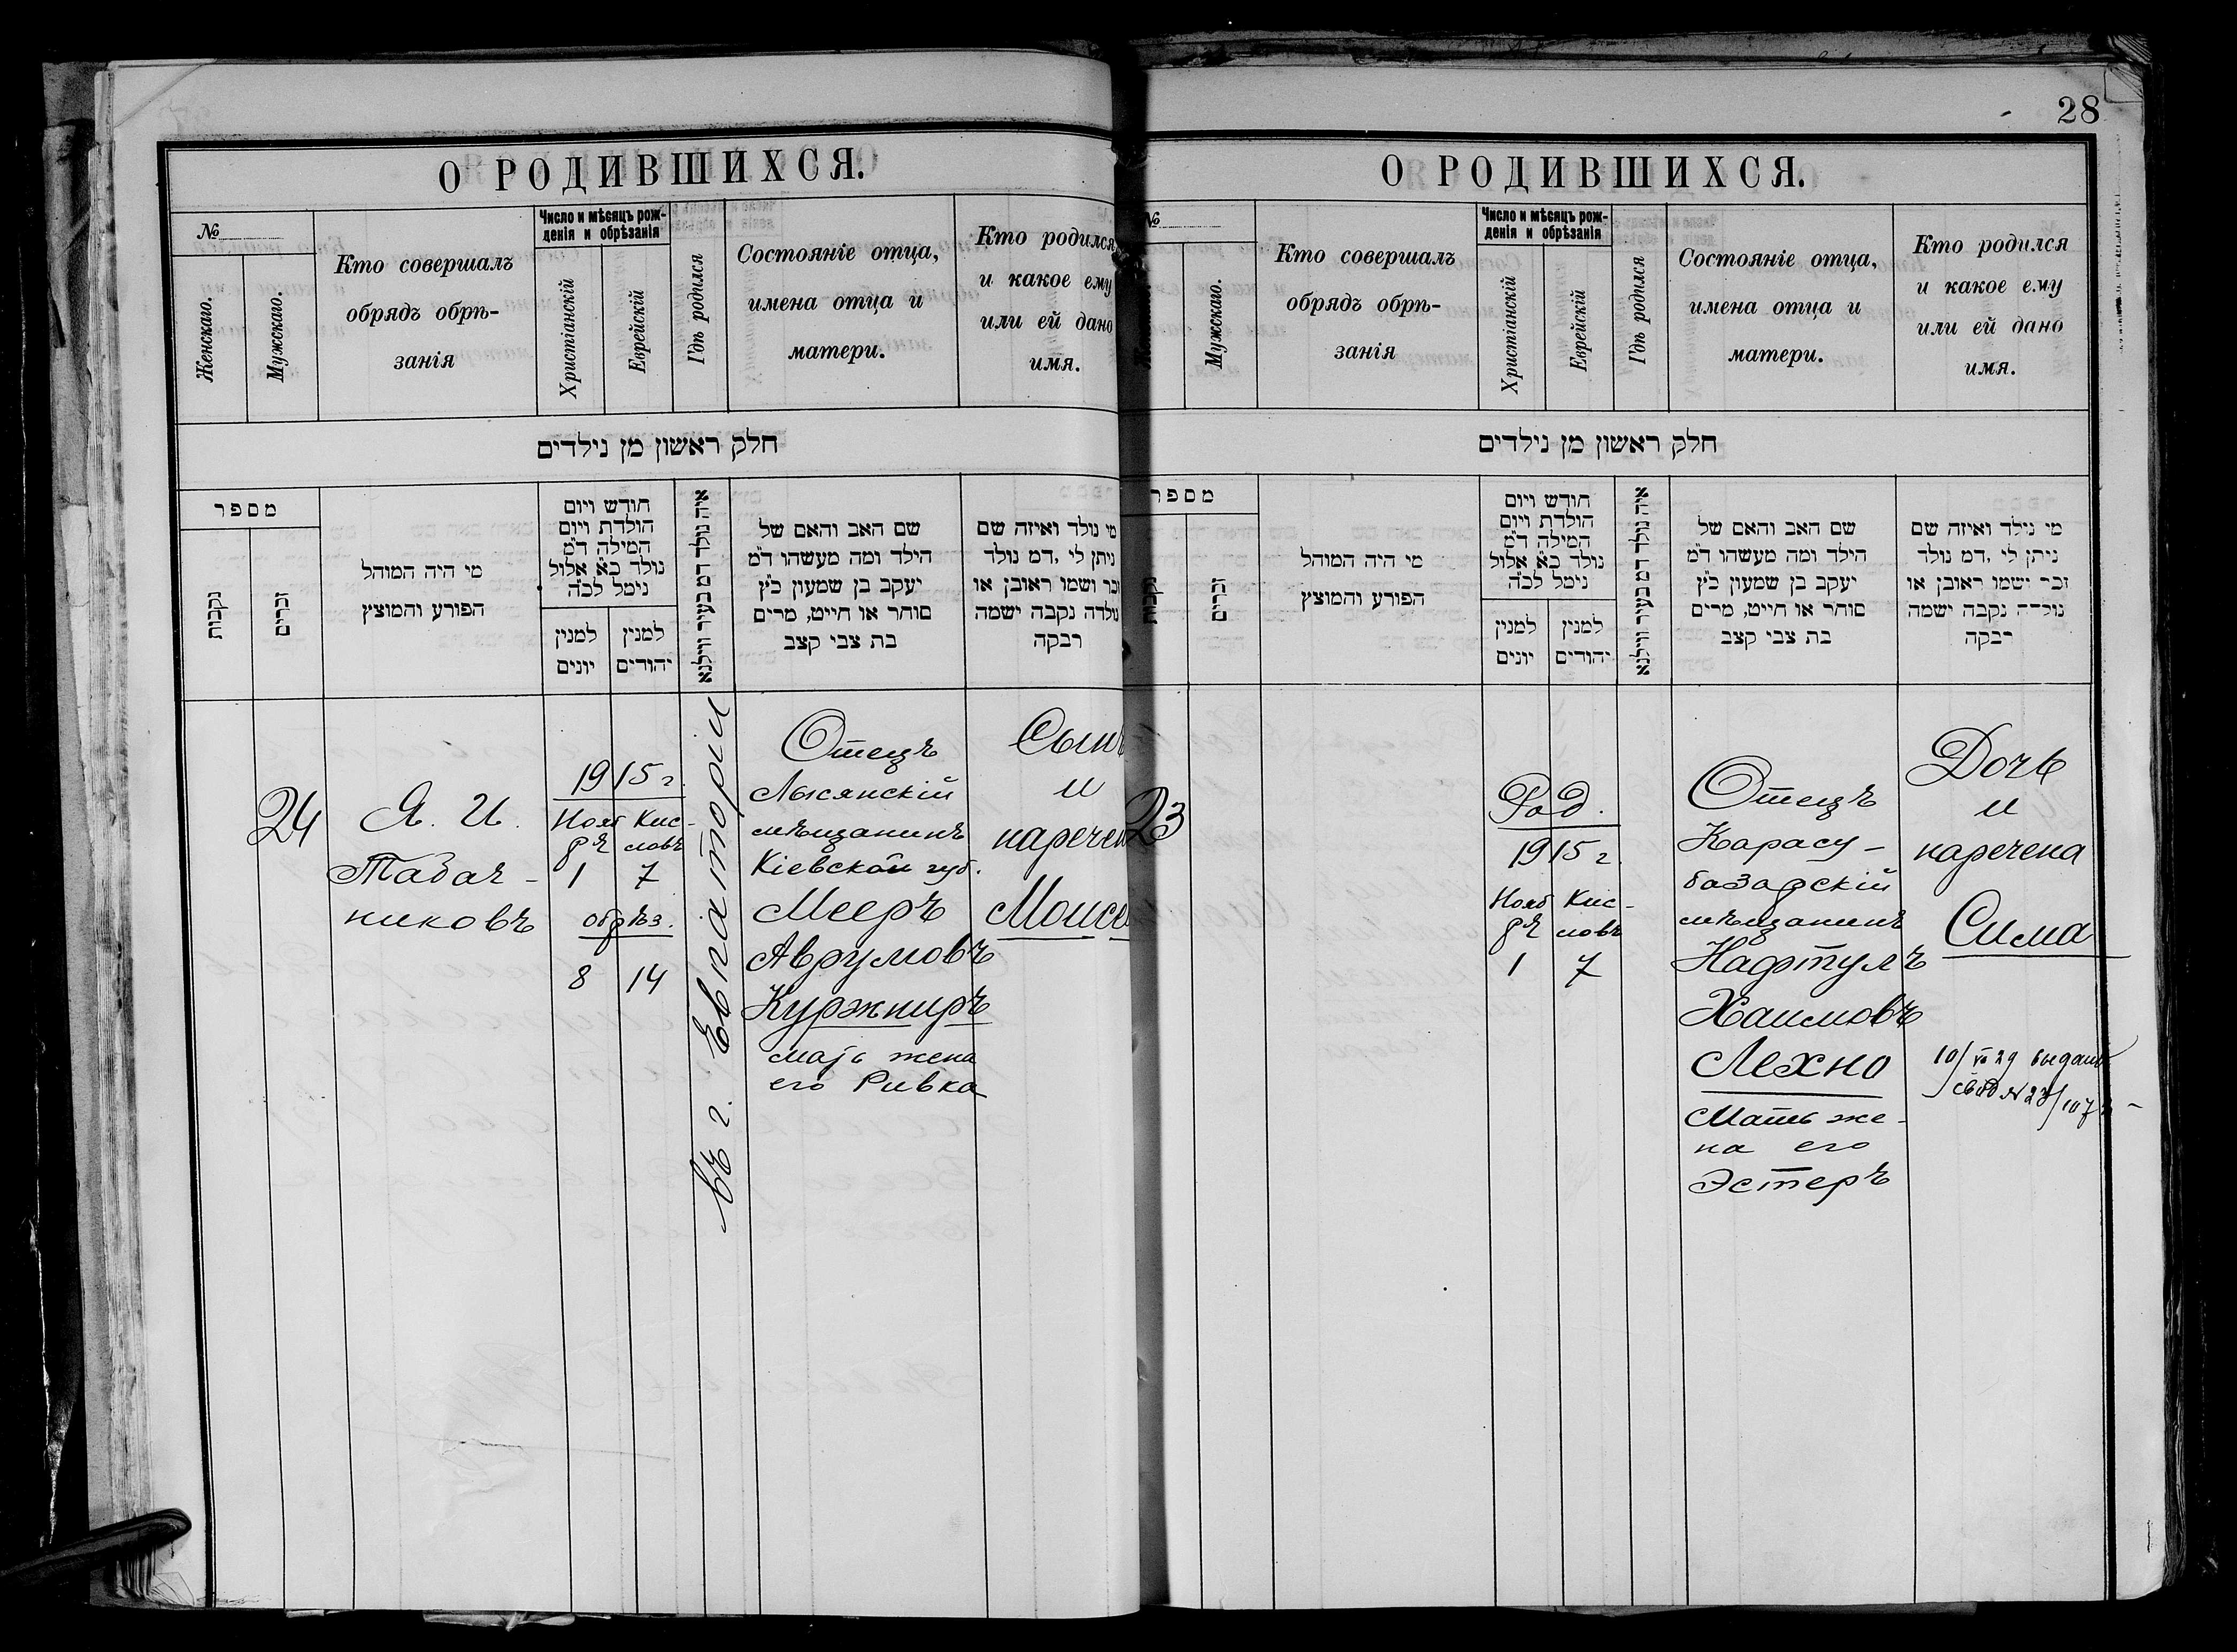 О РОДИВШИХСЯ.
№
Женскаго.
Мужскаго.
Кто совершалъ
обрядъ обрѣ-
занія
Число и мѣсяцъ рож-
денія и обрѣзанія
Христіанскій
Еврейскій
Гдѣ родился
Состояніе отца,
имена отца и
матери.
Кто родился
и какое ему
или ей дано
имя.
חלק ראשון מן נילדים
מספר
נקבות
זכרים
מי היה המוהל
הפורע והמוצץ
חודש ויום
הולדת ויום
המילה ד״מ
נולד כ״א אלול
נימל לכ״ה
למנין
יונים
למנין
יהודים
איה נולד דמ בעיר ווילנא
שם האב והאם של
הילד ומה מעשהו ד״מ
יעקב בן שמעון כ״ץ
סוחר או חייט, מרים
בת צבי קצב
מי נולד ואיזה שם
ניתן לי ,דמ נולד
זכר ושמו ראובן או
נולדה נקבה ישמה
רבקה
24
Я. И.
Табач-
никовъ
1915 г.
Нояб Кис-
ря словъ
1 7
обрѣз.
8 14
въ г. Евпаторіи
Отецъ
Лысянскій
мѣщанинъ
Кіевской губ.
Мееръ
Аврумовъ
Куржниръ
мать жена
его Ривка
Сынъ
и
наречен
Моисей
28
О РОДИВШИХСЯ.
№
Мужскаго.
Кто совершалъ
обрядъ обрѣ-
занія
Число и мѣсяцъ рож-
денія и обрѣзанія
Христіанскій
Еврейскій
Гдѣ родился
Состояніе отца,
имена отца и
матери.
Кто родился
и какое ему
или ей дано
имя.
חלק ראשון מן נילדים
מספר
נקבות
זכרים
מי היה המוהל
הפורע והמוצץ
חודש ויום
הולדת ויום
המילה ד״מ
נולד כ״א אלול
נימל לכ״ה
למנין
יונים
למנין
יהודים
איה נולד דמ בעיר ווילנא
שם האב והאם של
הילד ומה מעשהו ד״מ
יעקב בן שמעון כ״ץ
סוחר או חייט, מרים
בת צבי קצב
מי נילד ואיזה שם
ניתן לי ,דמ נולד
זכר ישמו ראובן או
נולדה נקבה ישמה
רבקה
23
Род.
1915 г.
Нояб Кис-
ря словъ
1 7
Отецъ
Карасу-
базарскій
мѣщанинъ
Нафтулъ
Хаимовъ
Лехно
Мать же-
на его
Эстеръ
Дочь
и
наречена
Сима
10/VI 29 выдано